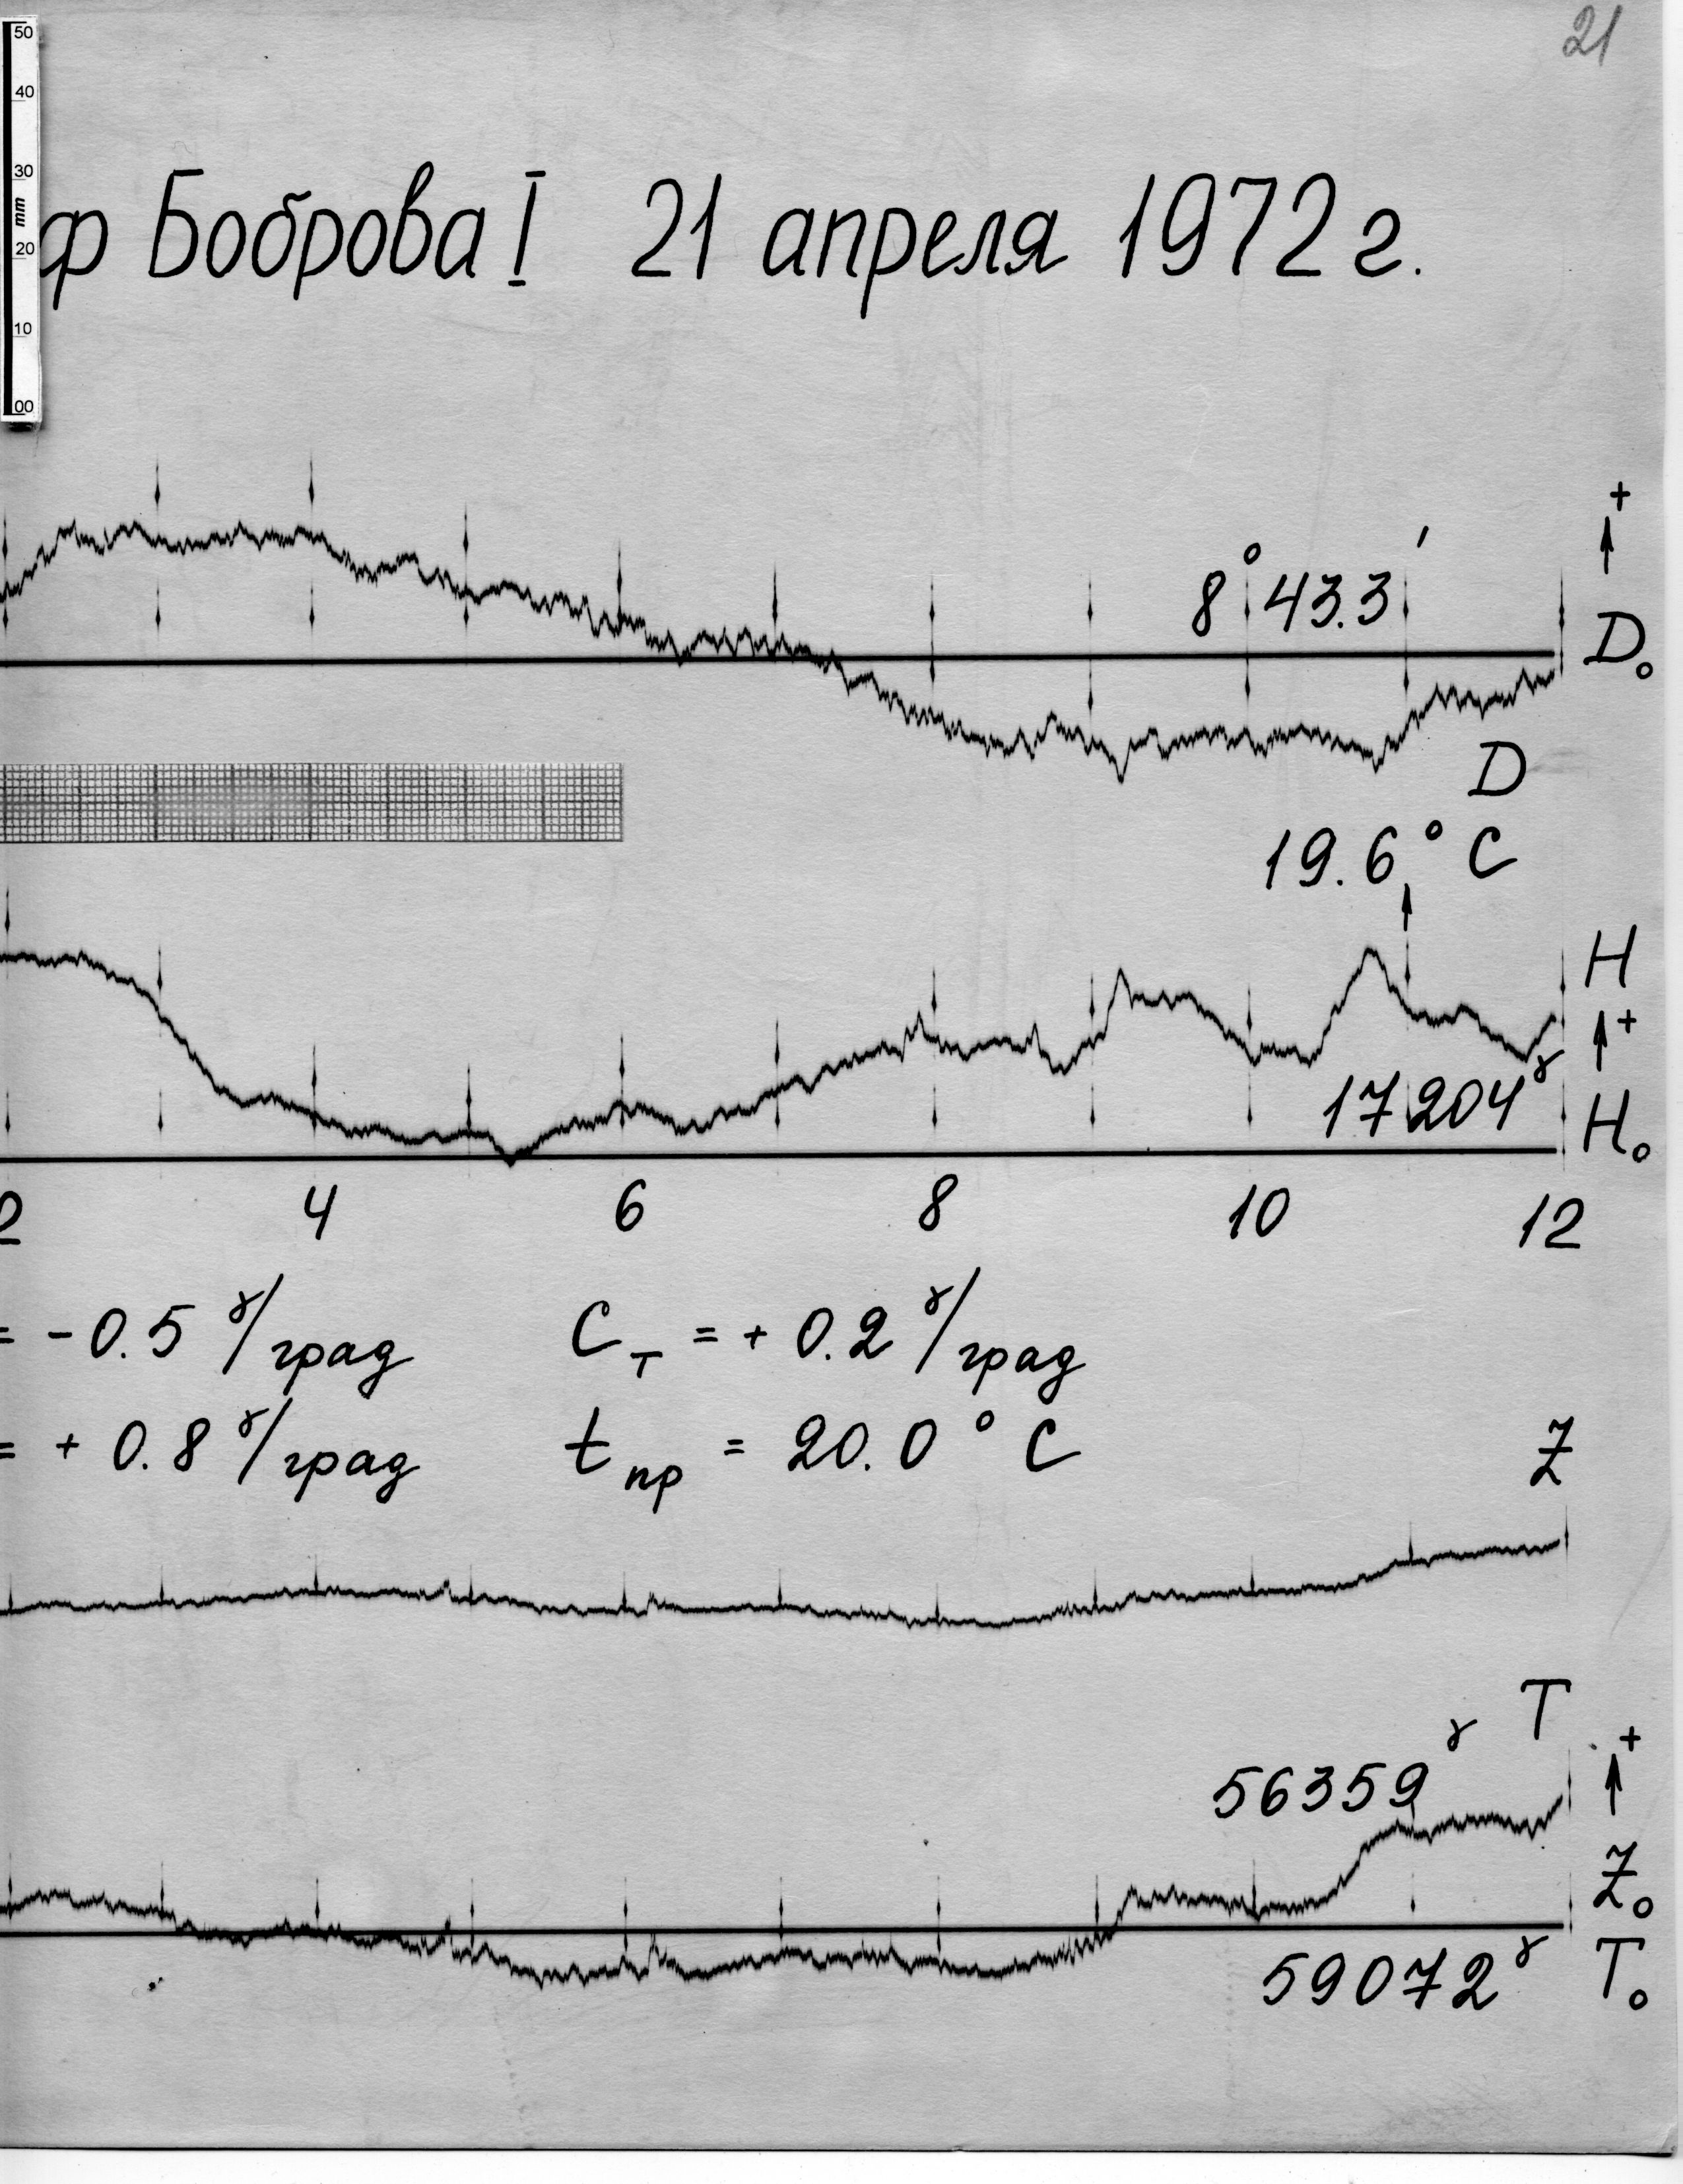 21
50
40
30
mm
20
10
00
ф Боброва I 21 апреля 1972 г.
+
8° 43.3′
D₀
D
19.6° C
H
+
17204ᵞ
H₀
2 4 6 8 10 12
= -0.5 ᵞ/град C_T = + 0.2 ᵞ/град
= + 0.8 ᵞ/град t_пр = 20.0° C
Z
T
+
56359ᵞ
Z₀
59072ᵞ
T₀